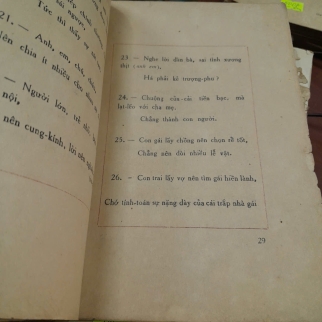 Túc thì thấy sự
21. — Anh, em, ch
iên chia ít nhiều cho
— Người lớn, trẻ
nội,
nên cung-kính, lời nên
23. — Nghe lời đàn bà, sai tình xương
thịt
Há phải kẻ trượng-phu?
24. — Chuộng của-cải tiền bạc, mà
lại-lẽo với cha mẹ,
Chẳng thành con người.
25. — Con gái lấy chồng nên chọn rể tốt,
Chẳng nên đòi nhiều lễ vật.
26. — Con trai lấy vợ nên tìm gái hiền lành,
Chớ tính-toán sự nặng dầy của cái tráp nhà gái
29